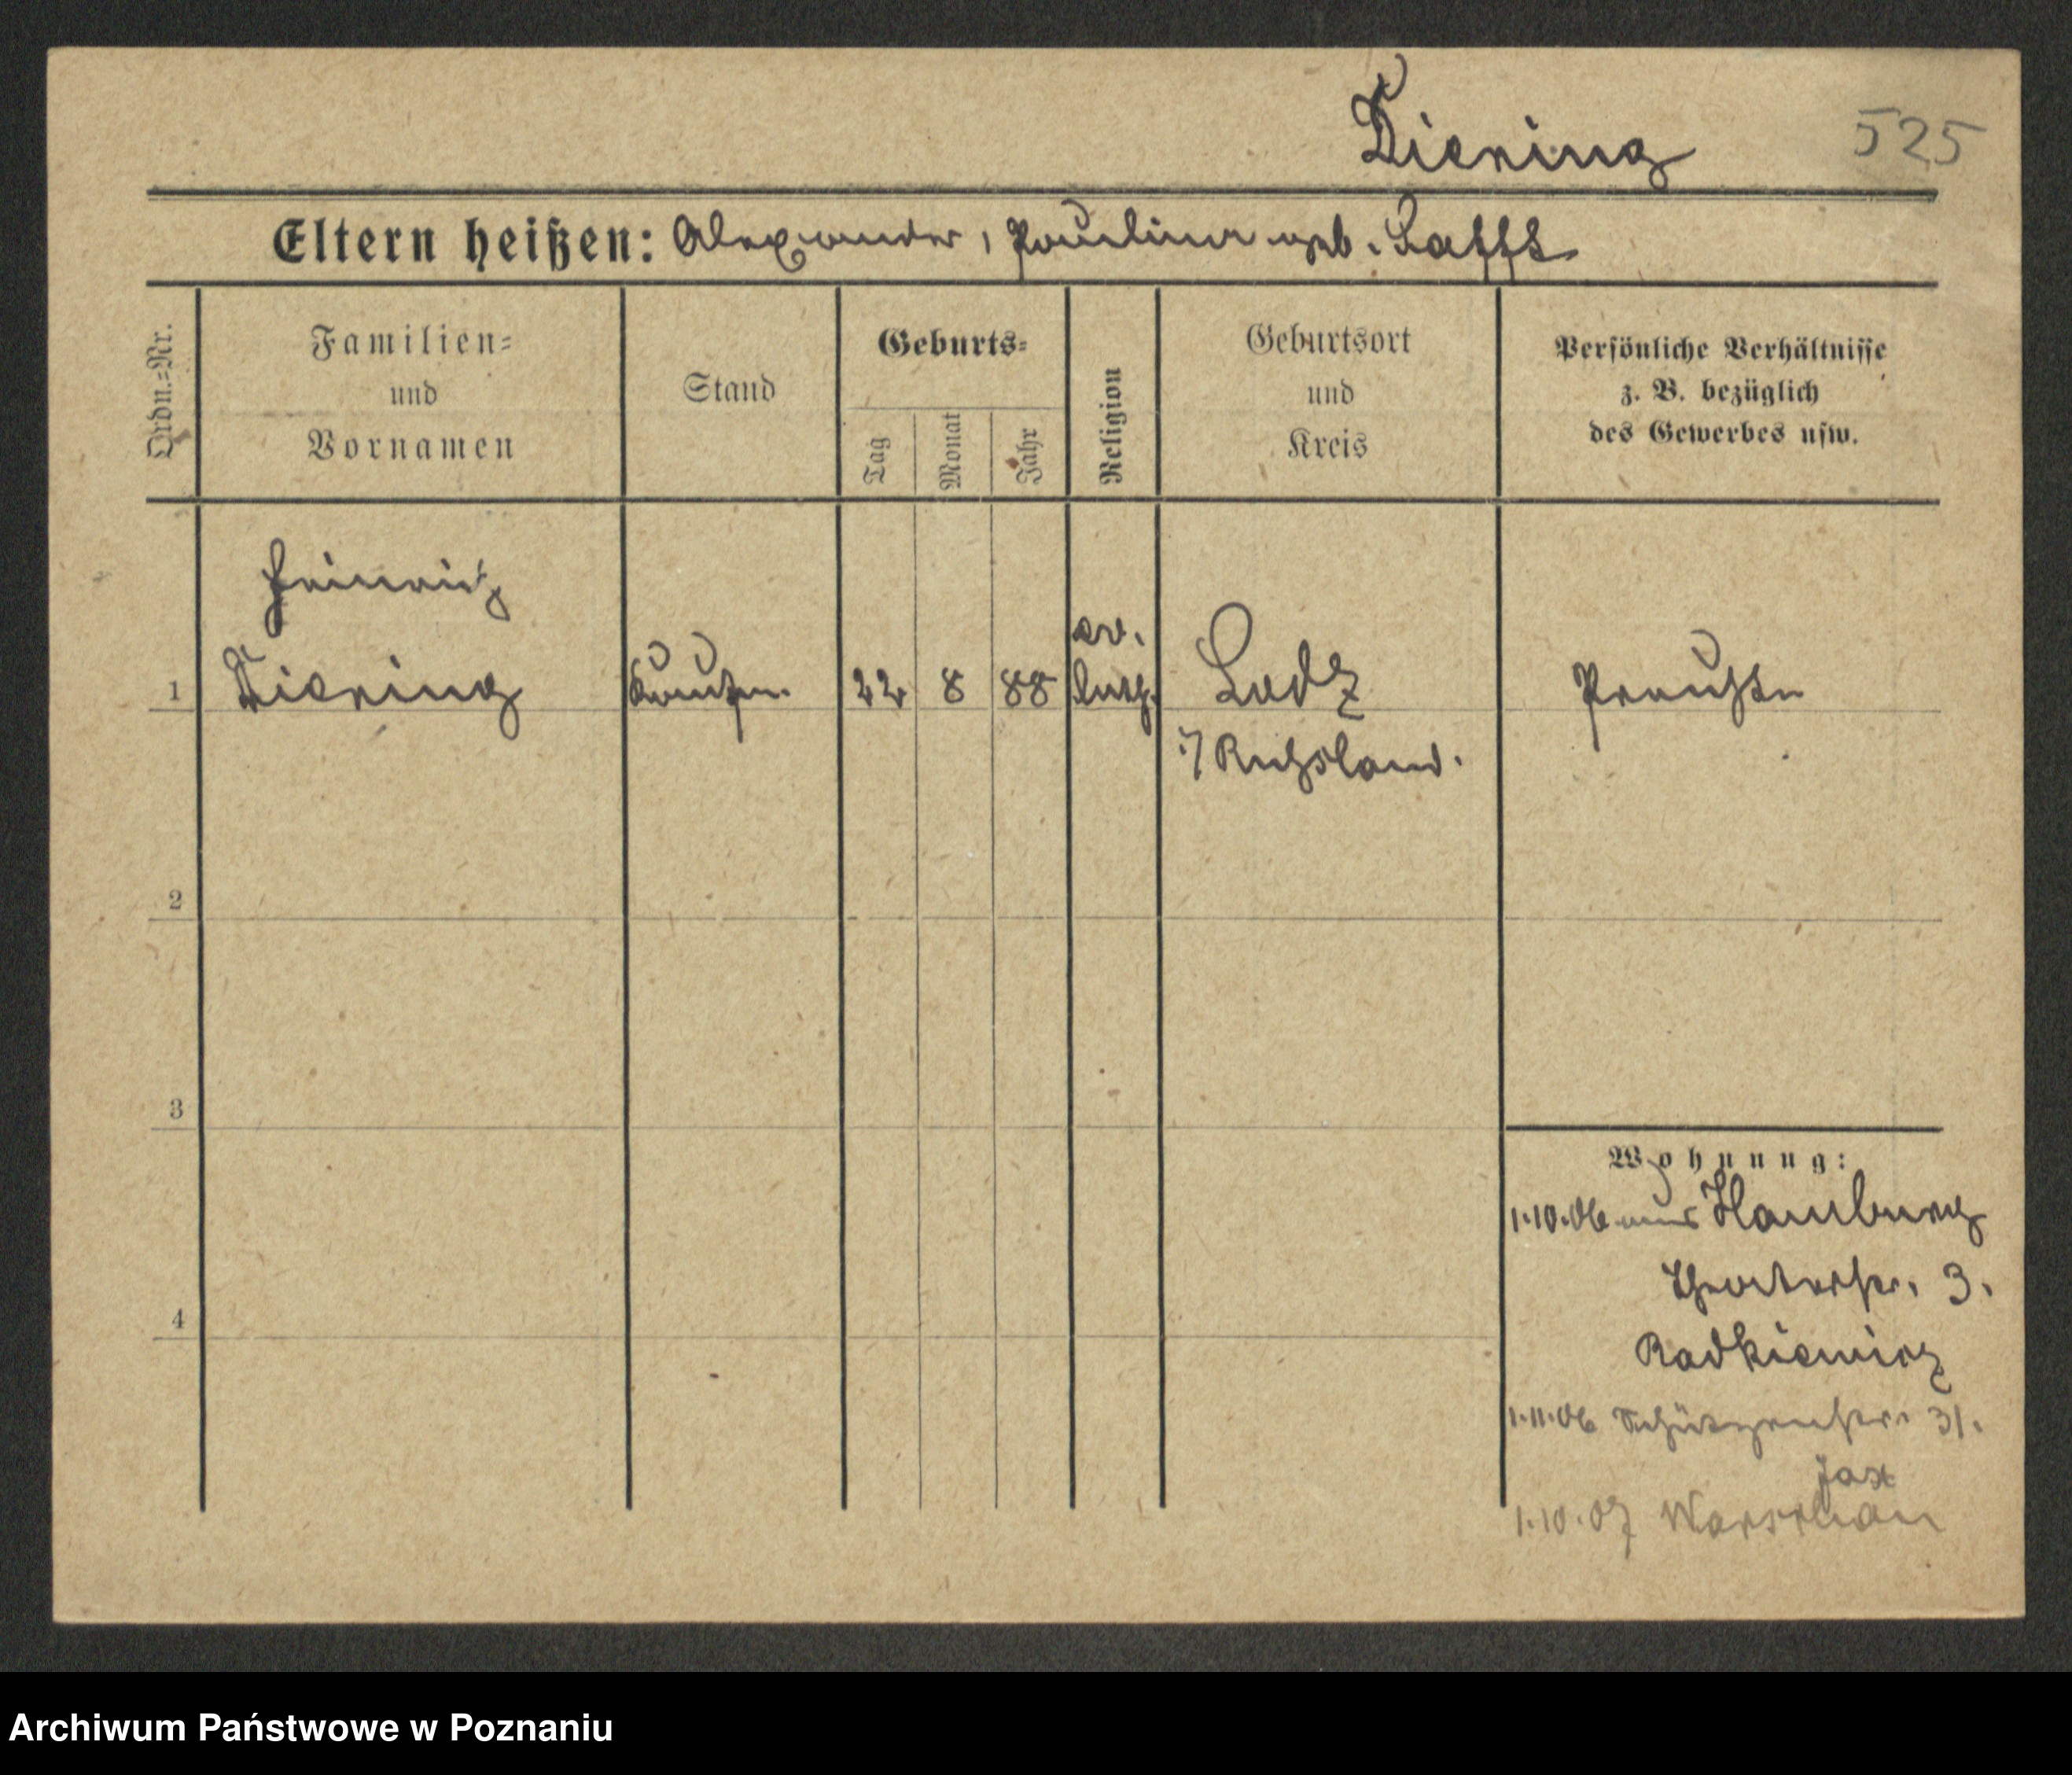 Diering 525
Eltern heißen: Alexander, Pauline geb. Laffs
Ordn.=Nr.
Familien=
und
Vornamen
Stand
Geburts=
Tag
Monat
Jahr
Religion
Geburtsort
und
Kreis
Persönliche Verhältnisse
z. B. bezüglich
des Gewerbes usw.
Heinrich
ev.
1 Diering Kaufm. 22 8 88 luth. Lodz Preuße
i/Russland.
2
3
4
Wohnung:
1.10.06 aus Hamburg
Theaterstr. 3.
Radkiewicz
1.11.06 Schützenstr. 31.
Jax
1.10.07 Warschau
Archiwum Państwowe w Poznaniu